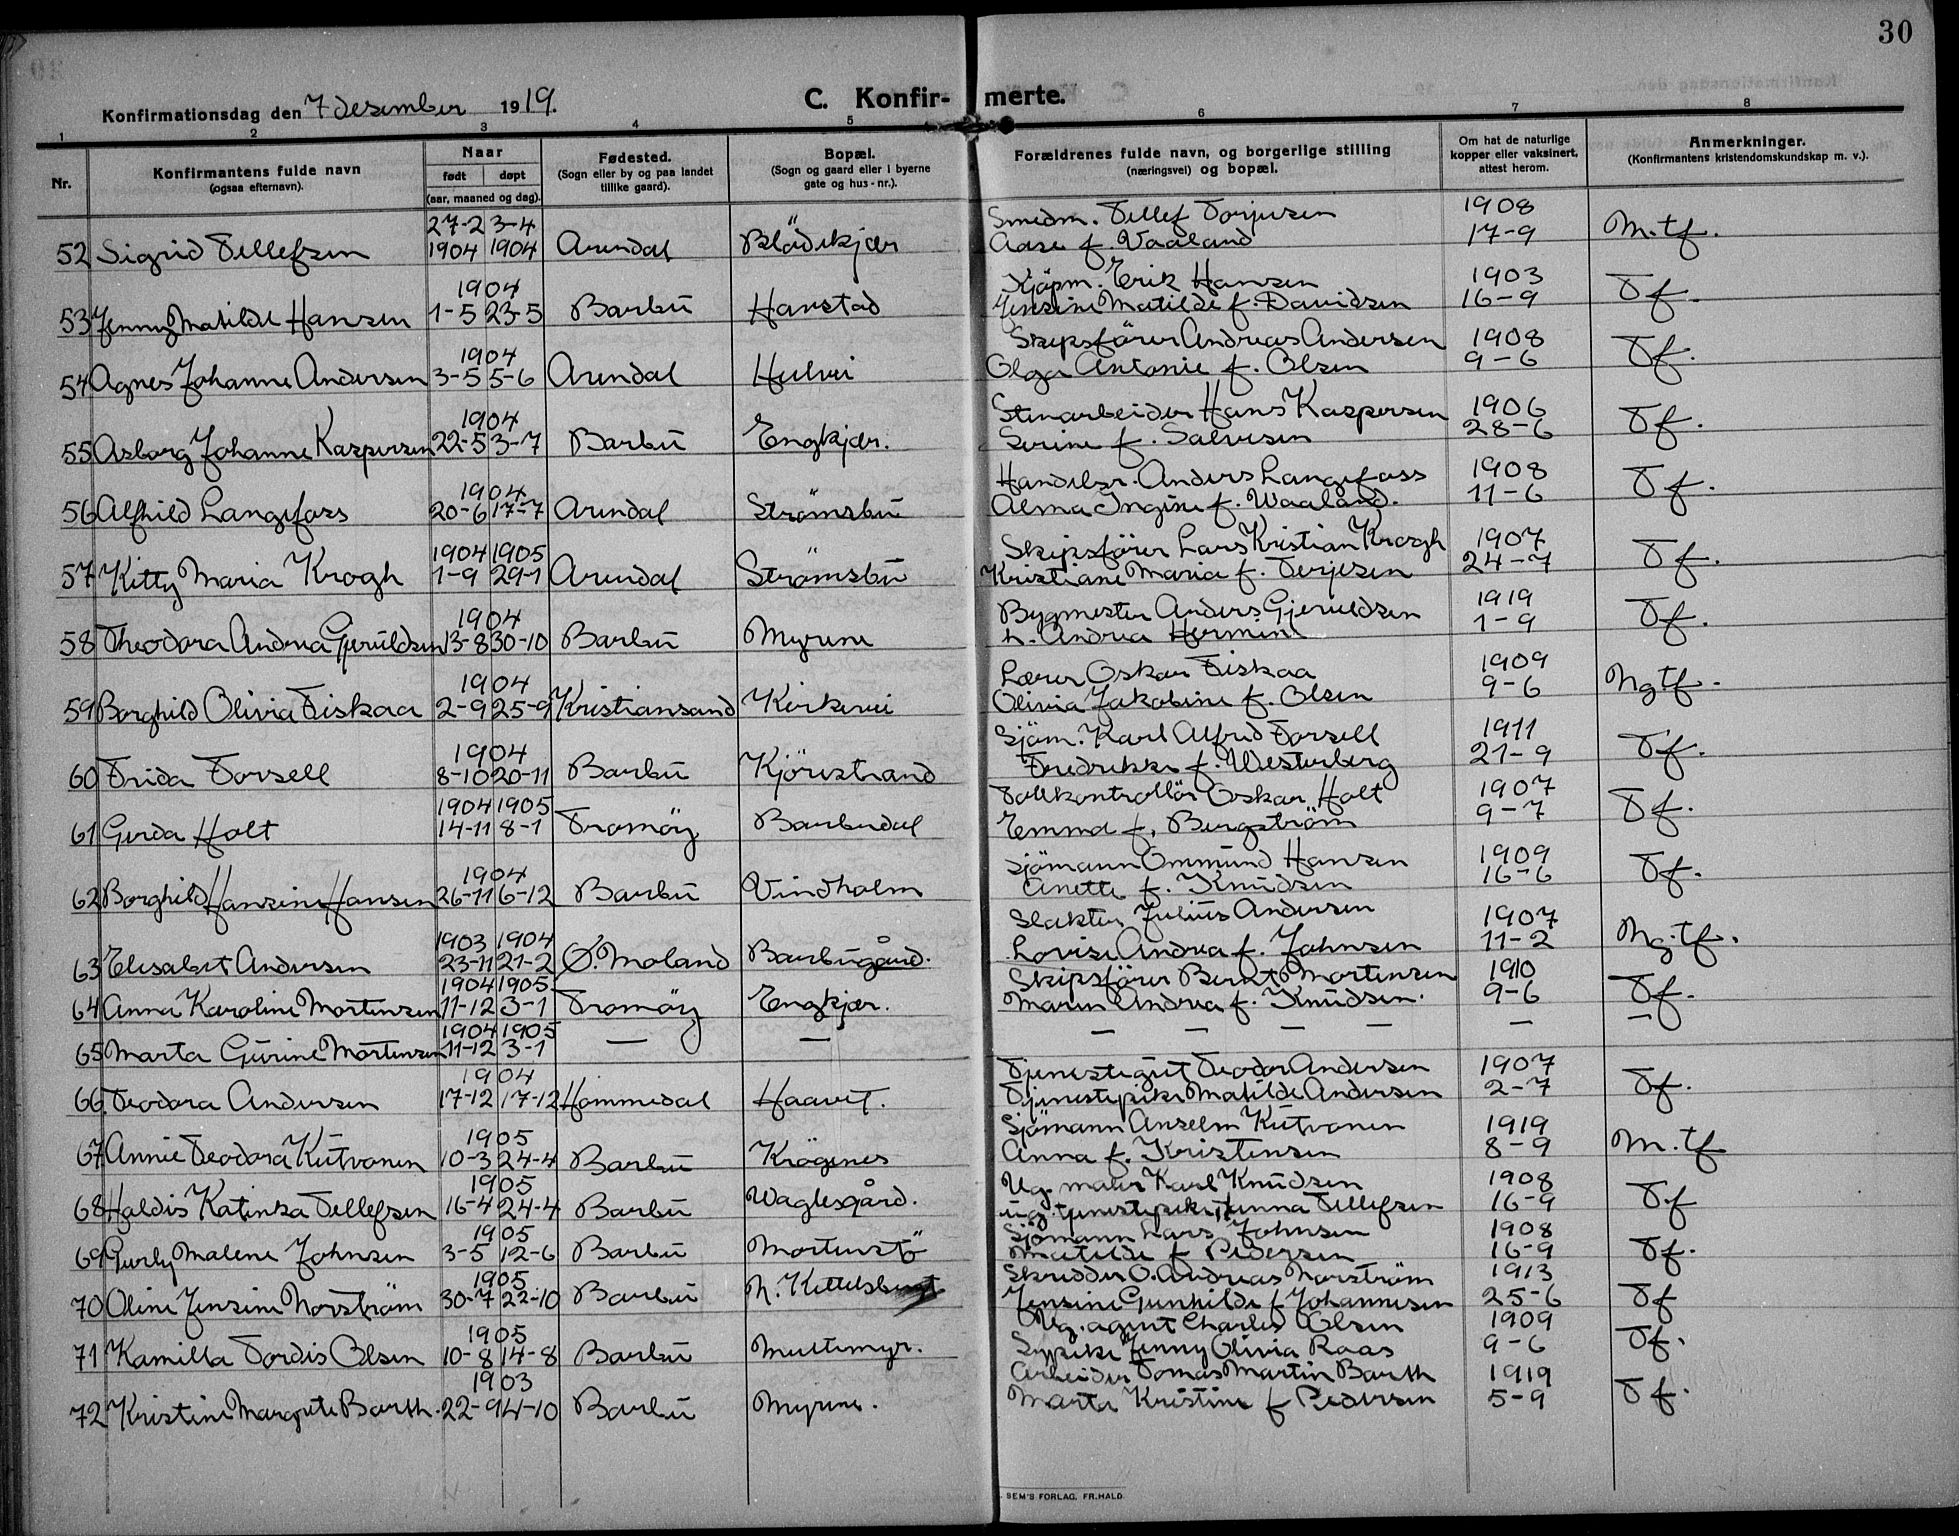 30
Konfirmationsdag den 7 desember 1919.
C. Konfirmerte.
1 2 3 4 5 6 7 8
Nr.
Konfirmantens fulde navn
(ogsaa efternavn).
Naar
født døpt
(aar, maaned og dag).
Fødested.
(Sogn eller by og paa landet
tillike gaard).
Bopæl.
(Sogn og gaard eller i byerne
gate og hus-nr.).
Forældrenes fulde navn, og borgerlige stilling
(næringsvei) og bopæl.
Om hat de naturlige
kopper eller vaksinert,
attest herom.
Anmerkninger.
(Konfirmantens kristendomskundskap m. v.).
27-2 3-4 Smedm. Tellef Torjusen 1908
52 Sigrid Tellefsen 1904 1904 Arendal Blødekjær Aase f. Vaaland 17-9 M.tf.
1904 Kjøpm. Erik Hansen 1903
53 Jenny Matilde Hansen 1-5 23-5 Barbu Harstad Jensine Matilde f. Davidsen 16-9 Tf.
1904 Skipsfører Andreas Andersen 1908
54 Agnes Johanne Andersen 3-5 5-6 Arendal Hulvei Olga Antonie f. Olsen 9-6 Tf.
1904 Stenarbeider Hans Kaspersen 1906
55 Asborg Johanne Kaspersen 22-5 3-7 Barbu Engkjær. Serine f. Salvesen 28-6 Tf.
1904 Handelsr. Anders Langefoss 1908
56 Alfhild Langefoss 20-6 17-7 Arendal Strømsbu Alma Ingine f. Waaland. 11-6 Tf.
1904 1905 Skipsfører Lars Kristian Krogh 1907
57 Kitty Maria Krogh 1-9 29-1 Arendal Strømsbu Kristiane Maria f. Terjesen 24-7 Tf.
1904 Bygmester Anders Gjeruldsen 1919
58 Theodora Andrea Gjeruldsen 13-8 30-10 Barbu Myrene h. Andrea Hermine 1-9 Tf.
1904 Lærer Oskar Fiskaa 1909
59 Borghild Olivia Fiskaa 2-9 25-9 Kristiansand Kirkevei Olivia Jakobine f. Olsen 9-6 Mgtf.
1904 Sjøm. Karl Alfred Forsell 1911
60 Frida Forsell 8-10 20-11 Barbu Kjørestrand Fredrikke f. Westerberg 21-9 Tf.
1904 1905 Tollkontrollør Oskar Holt 1907
61 Gerda Holt 14-11 8-1 Tromøy Barbudal Emma f. Bergstrøm 9-7 Tf.
1904 Sjømann Ommund Hansen 1909
62 Borghild Hansine Hansen 26-11 6-12 Barbu Vindholm Anette f. Knudsen 16-6 Tf.
1903 1904 Slakter Julius Andersen 1907
63 Elisabet Andersen 23-11 21-2 Ø. Moland Barbugård. Lovise Andrea f. Johnsen 11-2 Mg.tf.
1904 1905 Skipsfører Bernt Mortensen 1910
64 Anna Karoline Mortensen 11-12 3-1 Tromøy Engkjær. Maren Andrea f. Knudsen. 9-6 Tf.
1904 1905
65 Marta Gurine Mortensen 11-12 3-1 — — — — — — — —
1904 Tjenestegut Teodor Andersen 1907
66 Teodora Andersen 17-12 17-12 Hommedal Haavet. Tjenestepike Matilde Andersen 2-7 Tf.
1905 Sjømann Anselm Kutvonen 1919
67 Annie Teodora Kutvonen 10-3 24-4 Barbu Krøgenes Anna f. Kristensen 8-9 M.tf
1905 Ug. murer Karl Knudsen 1908
68 Haldis Katinka Tellefsen 16-4 24-4 Barbu Waglesgård. ug. tjenestepike Hanna Tellefsen 16-9 Tf
1905 Sjømann Lars Johnsen 1908
69 Gurly Malene Johnsen 3-5 12-6 Barbu Mortenstø Matilde f Pedersen 16-9 Tf.
1905 Skredder O. Andreas Norstrøm 1913
70 Oline Jensine Norstrøm 30-7 22-10 Barbu N. Kittelsbugt Jensine Gunhilde f Johannesen 25-6 Tf
1905 Ug. agent Charles Olsen 1909
71 Kamilla Tordis Olsen 10-8 14-8 Barbu Multemyr. Sypike Jenny Olivia Raas 9-6 Tf.
1903 Arbeider Tomas Martin Barth 1919
72 Kristine Margrete Barth. 22-9 4-10 Barbu Myrene. Marta Kristine f Pedersen 5-9 Tf.
SEM'S FORLAG, FR.HALD.